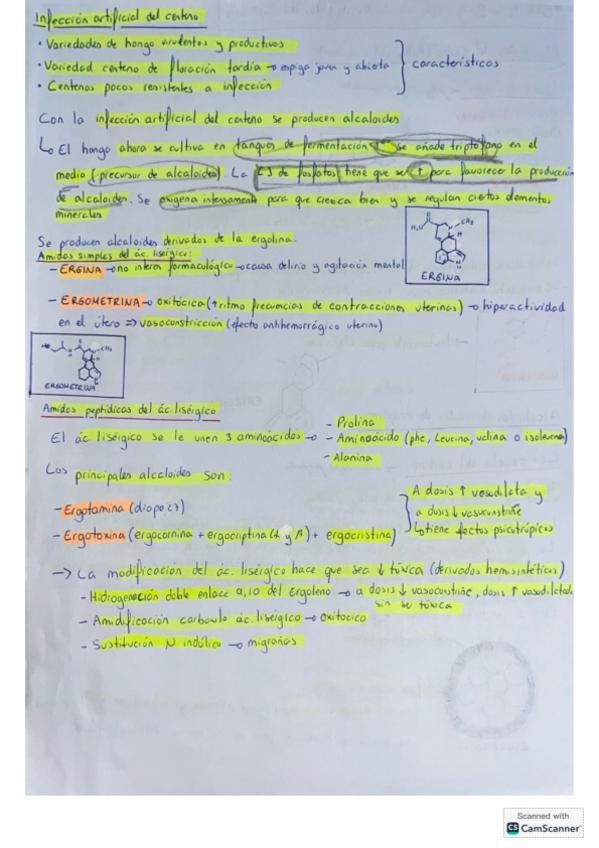 Infección artificial del centeno
• Variedades de hongo virulentos y productivos
• Variedad centeno de floración tardía → espiga joven y abierta
• Centenos pocos resistentes a infección
características
Con la infección artificial del centeno se producen alcaloides
↳ El hongo ahora se cultiva en tanques de fermentación y se añade triptófano en el
medio (precursor de alcaloides). La [ ] de fosfatos tiene que ser ↑ para favorecer la producción
de alcaloides. Se oxigena intensamente para que crezca bien y se regulan ciertos elementos
minerales
Se producen alcaloides derivados de la ergolina:
Amidas simples del ác. lisérgico:
– ERGINA → no interés farmacológico → causa delirio y agitación mental
ERGINA
– ERGOMETRINA → oxitócica (↑ ritmo frecuencias de contracciones uterinas) → hiperactividad
en el útero => vasoconstricción (efecto antihemorrágico uterino)
ERGOMETRINA
Amidas peptídicas del ác. lisérgico
El ác lisérgico se le unen 3 aminoácidos →
– Prolina
– Aminoácido (phe, Leucina, valina o isoleucina)
– Alanina
Los principales alcaloides son:
– Ergotamina (diapo 27)
– Ergotoxina (ergocornina + ergocriptina (α y β) + ergocristina)
A dosis ↑ vasodilata y
a dosis ↓ vasoconstriñe
↳ tiene efectos psicotrópicos
–> La modificación del ác. lisérgico hace que sea ↓ tóxica (derivados hemisintéticos)
– Hidrogenación doble enlace 9,10 del Ergoleno → a dosis ↓ vasoconstriñe, dosis ↑ vasodilatada
sin ser tóxica
– Amidificación carboxilo ác. lisérgico → oxitócico
– Sustitución N indólico → migrañas
Scanned with
CS CamScanner